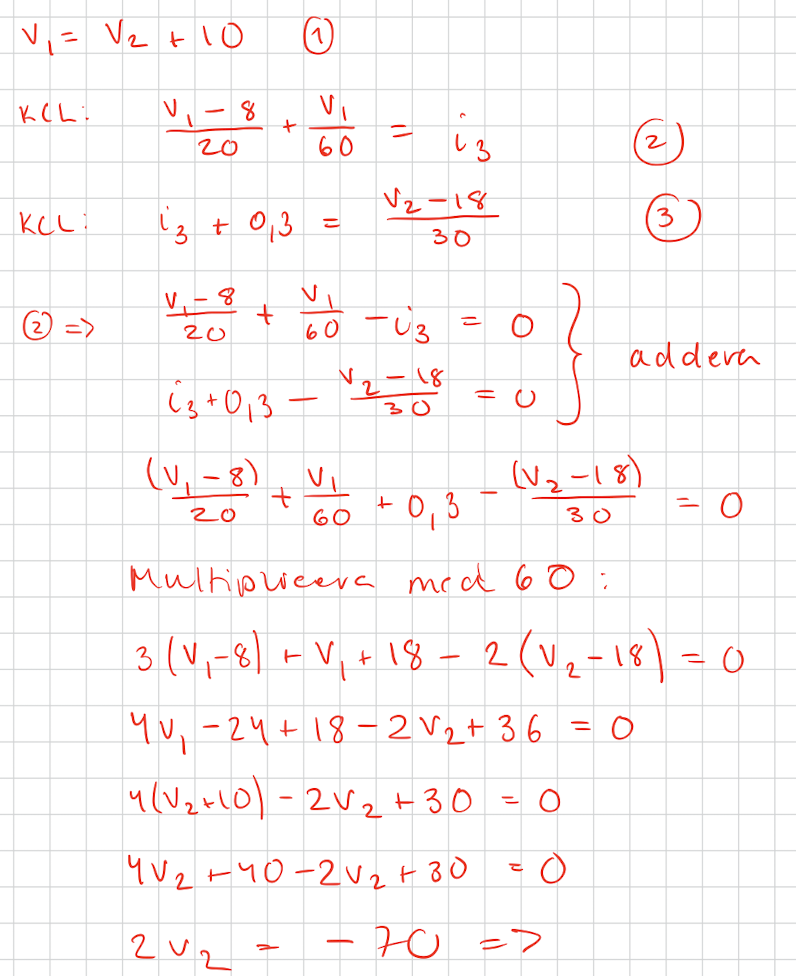 V₁ = V₂ + 10 ①
KCL: (V₁ - 8)/20 + V₁/60 = i₃ ②
KCL: i₃ + 0,3 = (V₂ - 18)/30 ③
② => (V₁ - 8)/20 + V₁/60 - i₃ = 0
i₃ + 0,3 - (V₂ - 18)/30 = 0 } addera
(V₁ - 8)/20 + V₁/60 + 0,3 - (V₂ - 18)/30 = 0
Multiplicera med 60:
3(V₁ - 8) + V₁ + 18 - 2(V₂ - 18) = 0
4V₁ - 24 + 18 - 2V₂ + 36 = 0
4(V₂ + 10) - 2V₂ + 30 = 0
4V₂ + 40 - 2V₂ + 30 = 0
2V₂ = -70 =>